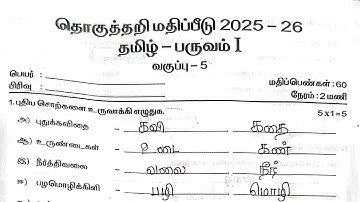 தொகுத்தறி மதிப்பீடு 2025 – 26
தமிழ் – பருவம் I
வகுப்பு – 5
பெயர் :
மதிப்பெண்கள் : 60
பிரிவு :
நேரம் : 2 மணி
1. புதிய சொற்களை உருவாக்கி எழுதுக. 5 x 1 = 5
அ) புதுக்கவிதை – கவி கதை
ஆ) உருண்டைகள் – உடை கண்
இ) நீர்த்திவலை – வலை நீர்
ஈ) பழமொழிக்கிளி – பழி மொழி